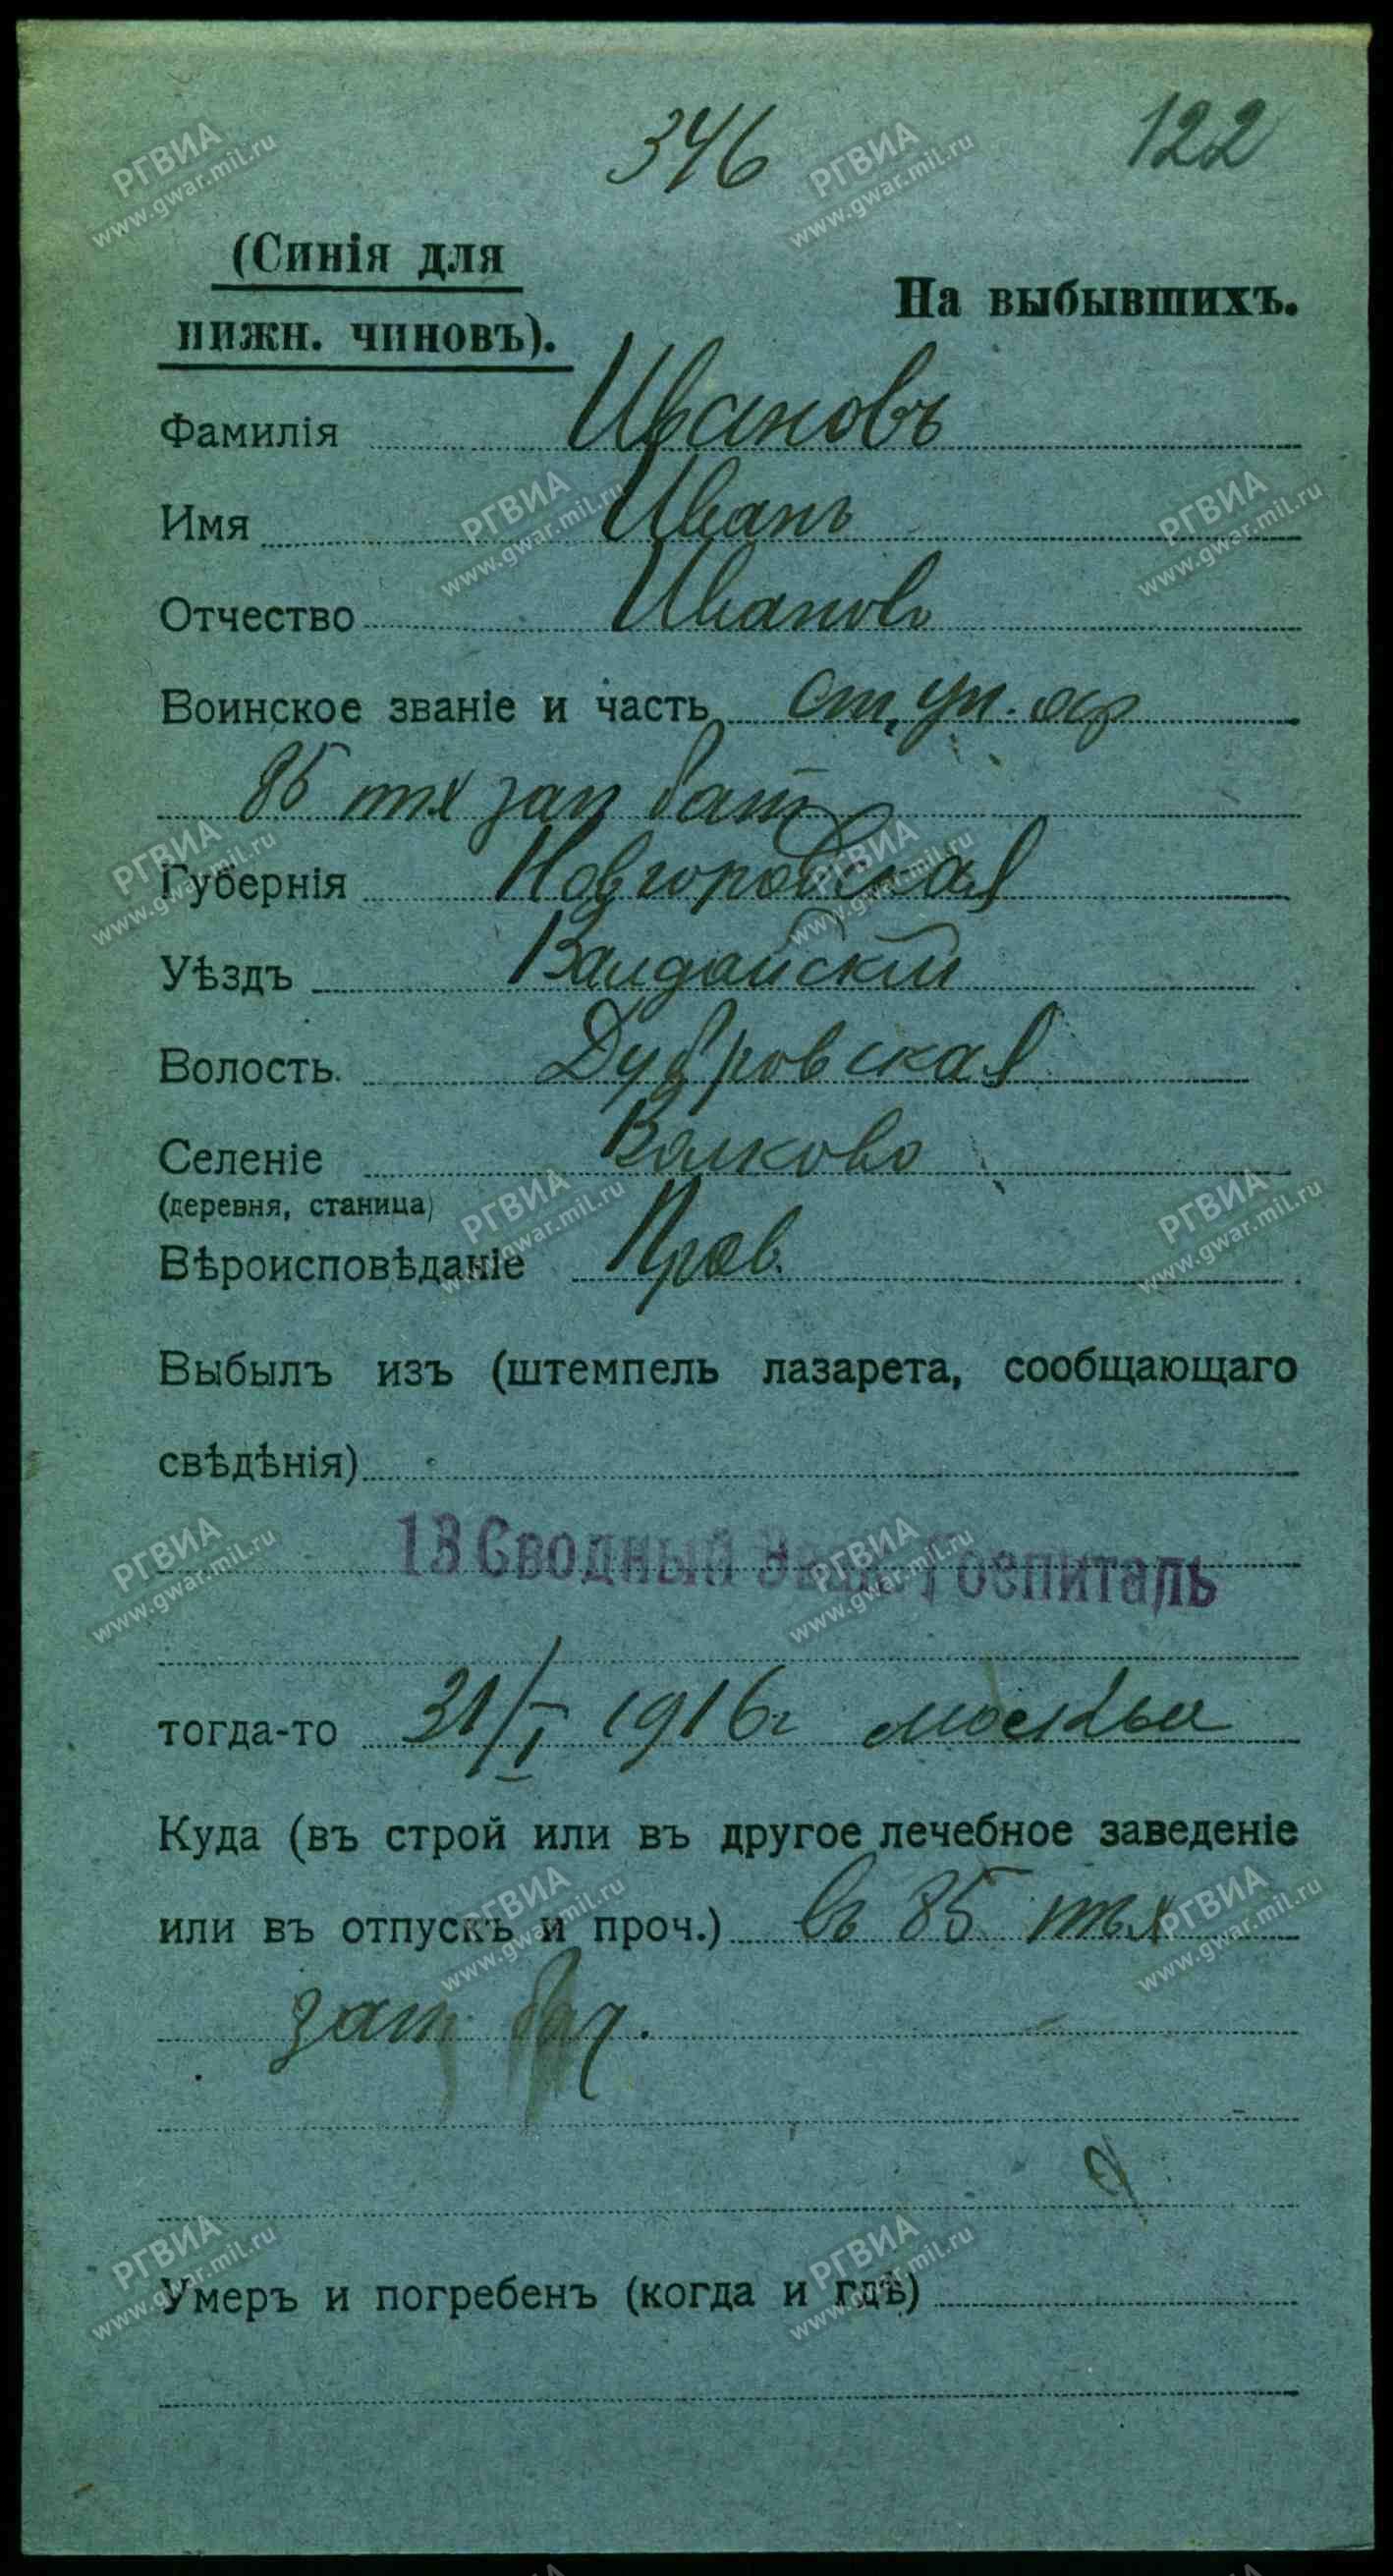 346 122
(Синія для
нижн. чиновъ).
На выбывшихъ.
Фамилія Ивановъ
Имя Иванъ
Отчество Ивановъ
Воинское званіе и часть ст. ун. оф
85 тх зап бат
Губернія Новгородская
Уѣздъ Валдайскій
Волость. Дубровская
Селеніе Волково
(деревня, станица)
Вѣроисповѣданіе Прав.
Выбылъ изъ (штемпель лазарета, сообщающаго
свѣдѣнія)
13 Сводный Эвак. Госпиталь
тогда-то 31/I 1916г Москвы
Куда (въ строй или въ другое лечебное заведеніе
или въ отпускъ и проч.) въ 85 тых
зап.
Умеръ и погребенъ (когда и гдѣ)